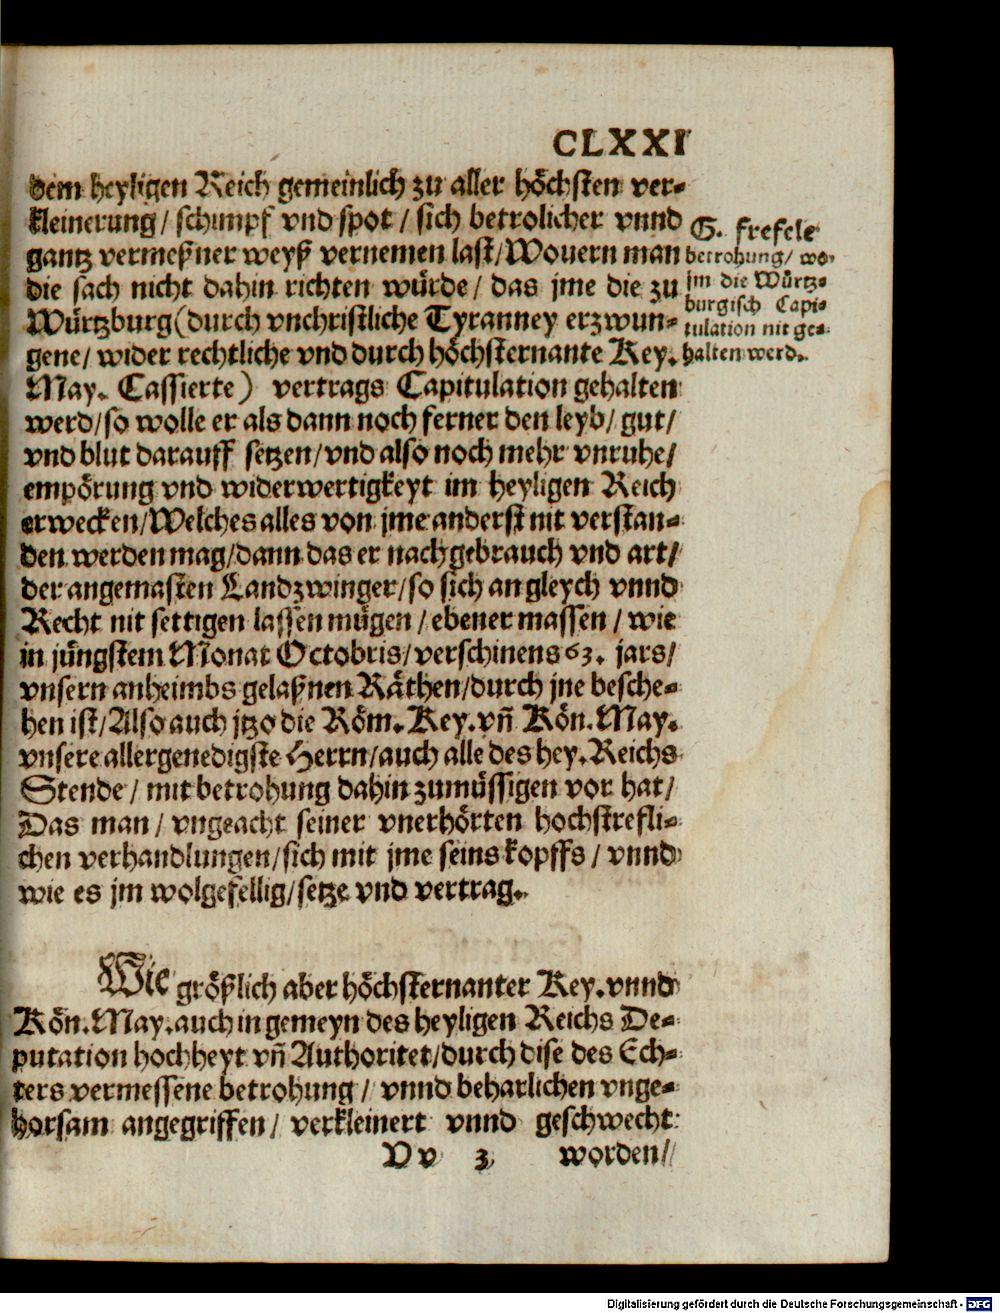 CLXXI
dem heyligen Reich gemeinlich zu aller höchsten ver-
kleinerung/ schimpf vnd spot/ sich betrolicher vnnd
gantz vermeßner weyß vernemen last/Wouern man
die sach nicht dahin richten würde/ das jme die zu
Würtzburg(durch vnchristliche Tyranney erzwun-
gene/ wider rechtliche vnd durch höchsternante Key.
May. Cassierte) vertrags Capitulation gehalten
werd/so wolle er als dann noch ferner den leyb/ gut/
vnd blut darauff setzen/vnd also noch mehr vnruhe/
empörung vnd widerwertigkeyt im heyligen Reich
erwecken/Welches alles von jme anderst nit verstan-
den werden mag/dann das er nach gebrauch vnd art/
der angemasten Landzwinger/so sich an gleych vnnd
Recht nit settigen lassen mügen/ ebener massen/ wie
in jüngstem Monat Octobris/verschinens 63. jars/
vnsern anheimbs gelaßnen Räthen/durch jne besche-
hen ist/Also auch jtzo die Röm.Key.vn̄ Kön.May.
vnsere allergenedigste Herrn/auch alle des hey.Reichs
Stende/ mit betrohung dahin zumüssigen vor hat/
Das man/ vngeacht seiner vnerhörten hochstrefli-
chen verhandlungen/sich mit jme seins kopffs/ vnnd
wie es jm wolgefellig/setze vnd vertrag.
G. frefele
betrohung/ wo-
jm die Würtz-
burgisch Capi-
tulation nit ge-
halten werd.
Wie größlich aber höchsternanter Key.vnnd
Kön.May.auch in gemeyn des heyligen Reichs De-
putation hochheyt vn̄ Authoritet/durch dise des Ech-
ters vermessene betrohung/ vnnd beharlichen vnge-
horsam angegriffen/ verkleinert vnnd geschwecht
Vv 3 worden/
Digitalisierung gefördert durch die Deutsche Forschungsgemeinschaft - DFG